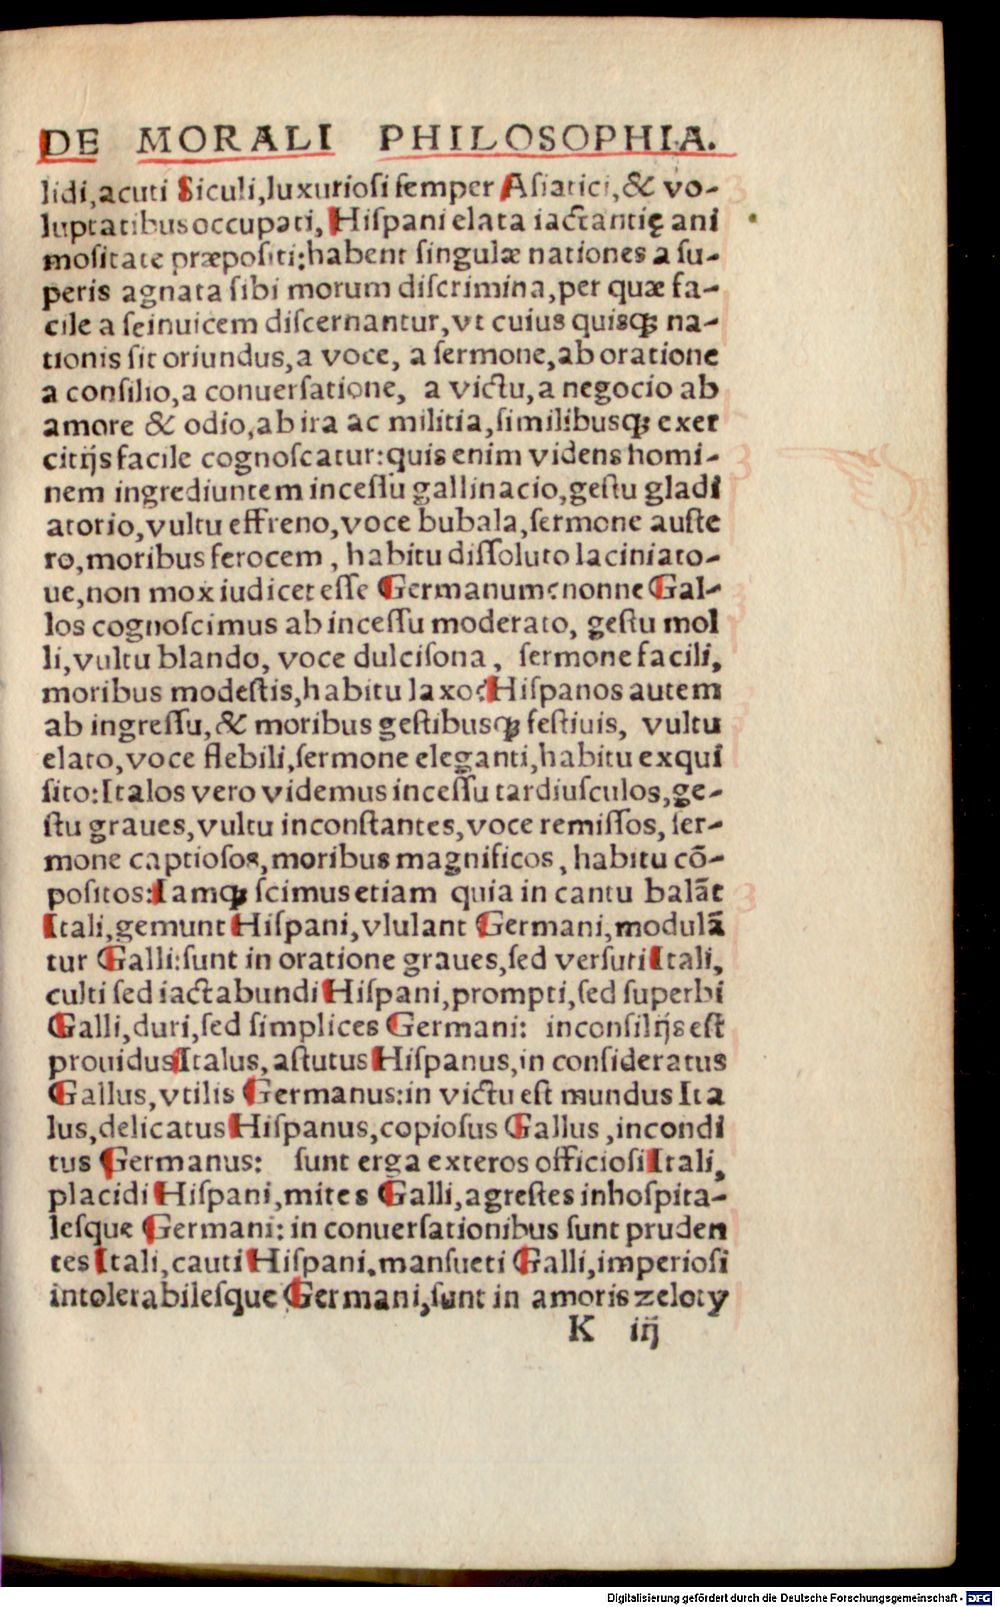 DE MORALI PHILOSOPHIA.
lidi,acuti Siculi,luxuriosi semper Asiatici,& vo-
luptatibus occupati, Hispani elata iactantię ani
mositate præpositi:habent singulæ nationes a su-
peris agnata sibi morum discrimina,per quæ fa-
cile a seinuicem discernantur,vt cuius quisqȝ na-
tionis sit oriundus,a voce, a sermone,ab oratione
a consilio,a conuersatione, a victu,a negocio ab
amore & odio,ab ira ac militia,similibusqȝ exer
citijs facile cognoscatur:quis enim videns homi-
nem ingrediuntem incessu gallinacio,gestu gladi
atorio,vultu effreno,voce bubala,sermone auste
ro,moribus ferocem , habitu dissoluto laciniato-
ue,non mox iudicet esse Germanum?nonne Gal-
los cognoscimus ab incessu moderato, gestu mol
li,vultu blando, voce dulcisona, sermone facili,
moribus modestis,habitu laxo?Hispanos autem
ab ingressu,& moribus gestibusqȝ festiuis, vultu
elato,voce flebili,sermone eleganti,habitu exqui
sito:Italos vero videmus incessu tardiusculos,ge-
stu graues,vultu inconstantes,voce remissos, ser-
mone captiosos,moribus magnificos, habitu cõ-
positos:Iamqȝ scimus etiam quia in cantu balãt
Itali,gemunt Hispani,vlulant Germani,modulã
tur Galli:sunt in oratione graues,sed versuti Itali,
culti sed iactabundi Hispani,prompti,sed superbi
Galli,duri,sed simplices Germani: inconsilijs est
prouidus Italus, astutus Hispanus,in consideratus
Gallus,vtilis Germanus:in victu est mundus Ita
lus,delicatus Hispanus,copiosus Gallus ,incondi
tus Germanus: sunt erga exteros officiosi Itali,
placidi Hispani,mites Galli,agrestes inhospita-
lesque Germani: in conuersationibus sunt pruden
tes Itali,cauti Hispani,mansueti Galli,imperiosi
intolerabilesque Germani,sunt in amoris zeloty
K iij
Digitalisierung gefördert durch die Deutsche Forschungsgemeinschaft - DFG